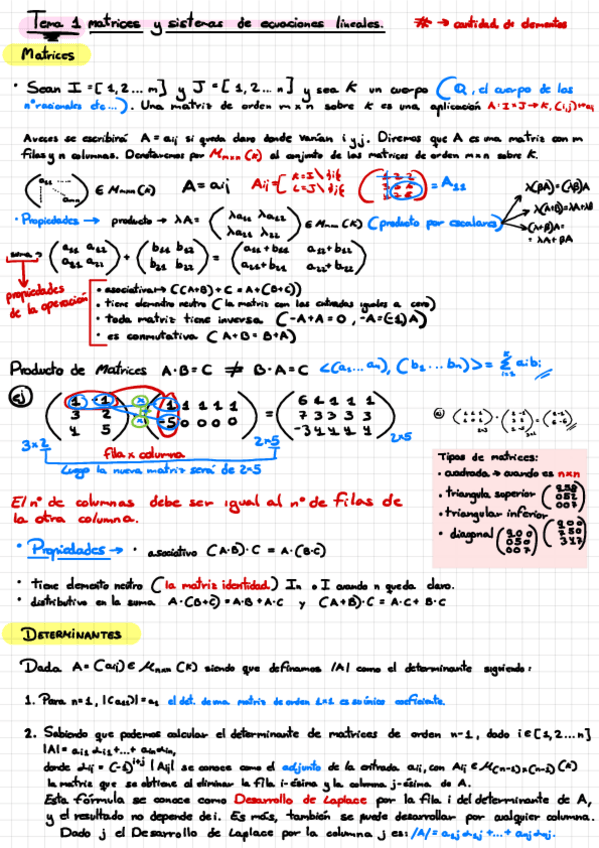 Tema 1 matrices y sistemas de ecuaciones lineales.
# → cantidad de elementos
Matrices
· Sean I = [1, 2... m] y J = [1, 2... n] y sea K un cuerpo (Q, el cuerpo de los
nºracionales etc...). Una matriz de orden m×n sobre K es una aplicación A: I×J → K, (i,j)↦aij
Aveces se escribirá A = aij si queda claro donde varían i y j. Diremos que A es una matriz con m
filas y n columnas. Denotaremos por Mmxn (K) al conjunto de las matrices de orden m×n sobre K.
(a11 ... amn) ∈ Mmxn (K) A = aij Aij = [ K = I \ {i} L = J \ {j} = A11
· Propiedades → producto → λA = (λa11 λa12 λa21 λa22) ∈ Mmxn (K) (producto por escalares)
λ(βA) = (λβ)A
λ(A+B) = λA+λB
(λ+β)A =
= λA + βA
suma → (a11 a12 a21 a22) + (b11 b12 b21 b22) = (a11+b11 a12+b12 a21+b21 a22+b22)
propiedades
de la operación
· asociativa → ((A+B) + C = A+(B+C))
· tiene elemento neutro (la matriz con las entradas iguales a cero)
· toda matriz tiene inversa (-A+A = 0, -A = (-1)A)
· es conmutativa (A+B = B+A)
Producto de Matrices A·B = C ≠ B·A = C <(a1...an), (b1...bn)> = Σ aibi
ej
(1 -1
3 2
4 5)
(1 1 1 1 1
-5 0 0 0 0)
=
(6 1 1 1 1
7 3 3 3 3
-3 4 4 4 4)
3×2 2×5 2×5
fila x columna
Luego la nueva matriz será de 2×5
El nº de columnas debe ser igual al nº de filas de
la otra columna.
Tipos de matrices:
· cuadrada → cuando es n×n
· triangula superior
· triangular inferior
· diagonal
· Propiedades → · asociativo (A·B)·C = A·(B·C)
· tiene elemento neutro (la matriz identidad) In o I cuando n queda claro.
· distributivo en la suma A·(B+C) = A·B + A·C y (A+B)·C = A·C + B·C
DETERMINANTES
Dada A = (aij) ∈ Mnxn (K) siendo que definamos |A| como el determinante siguiente:
1. Para n=1, |(a11)| = a1 el det. de una matriz de orden 1×1 es su único coeficiente.
2. Sabiendo que podemos calcular el determinante de matrices de orden n-1, dado i ∈ [1, 2...n]
|A| = ai1 αi1 + ... + ain αin,
donde αij = (-1)^i+j |Aij| se conoce como el adjunto de la entrada aij, con Aij ∈ M(n-1)×(n-1) (K)
la matriz que se obtiene al eliminar la fila i-ésima y la columna j-ésima de A.
Esta fórmula se conoce como Desarrollo de Laplace por la fila i del determinante de A,
y el resultado no depende de i. Es más, también se puede desarrollar por cualquier columna.
Dado j el Desarrollo de Laplace por la columna j es: |A| = a1j α1j + ... + anj αnj.